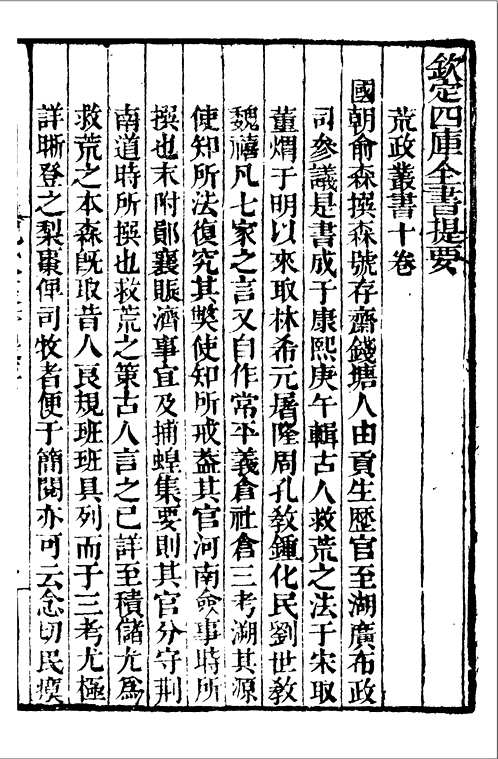 欽定四庫全書提要
荒政叢書十卷
國朝俞森撰森號存齋錢塘人由貢生歷官至湖廣布政
司參議是書成于康熙庚午輯古人救荒之法于宋取
董煟于明以來取林希元屠隆周孔教鍾化民劉世教
魏禧凡七家之言又自作常平義倉社倉三考溯其源
使知所法復究其獘使知所戒葢其官河南僉事時所
撰也末附鄖襄賑濟事宜及捕蝗集要則其官分守荆
南道時所撰也救荒之策古人言之已詳至積儲尤爲
救荒之本森既取昔人良規班班具列而于三考尤極
詳晰登之梨棗俾司牧者便于簡閱亦可云念切民瘼